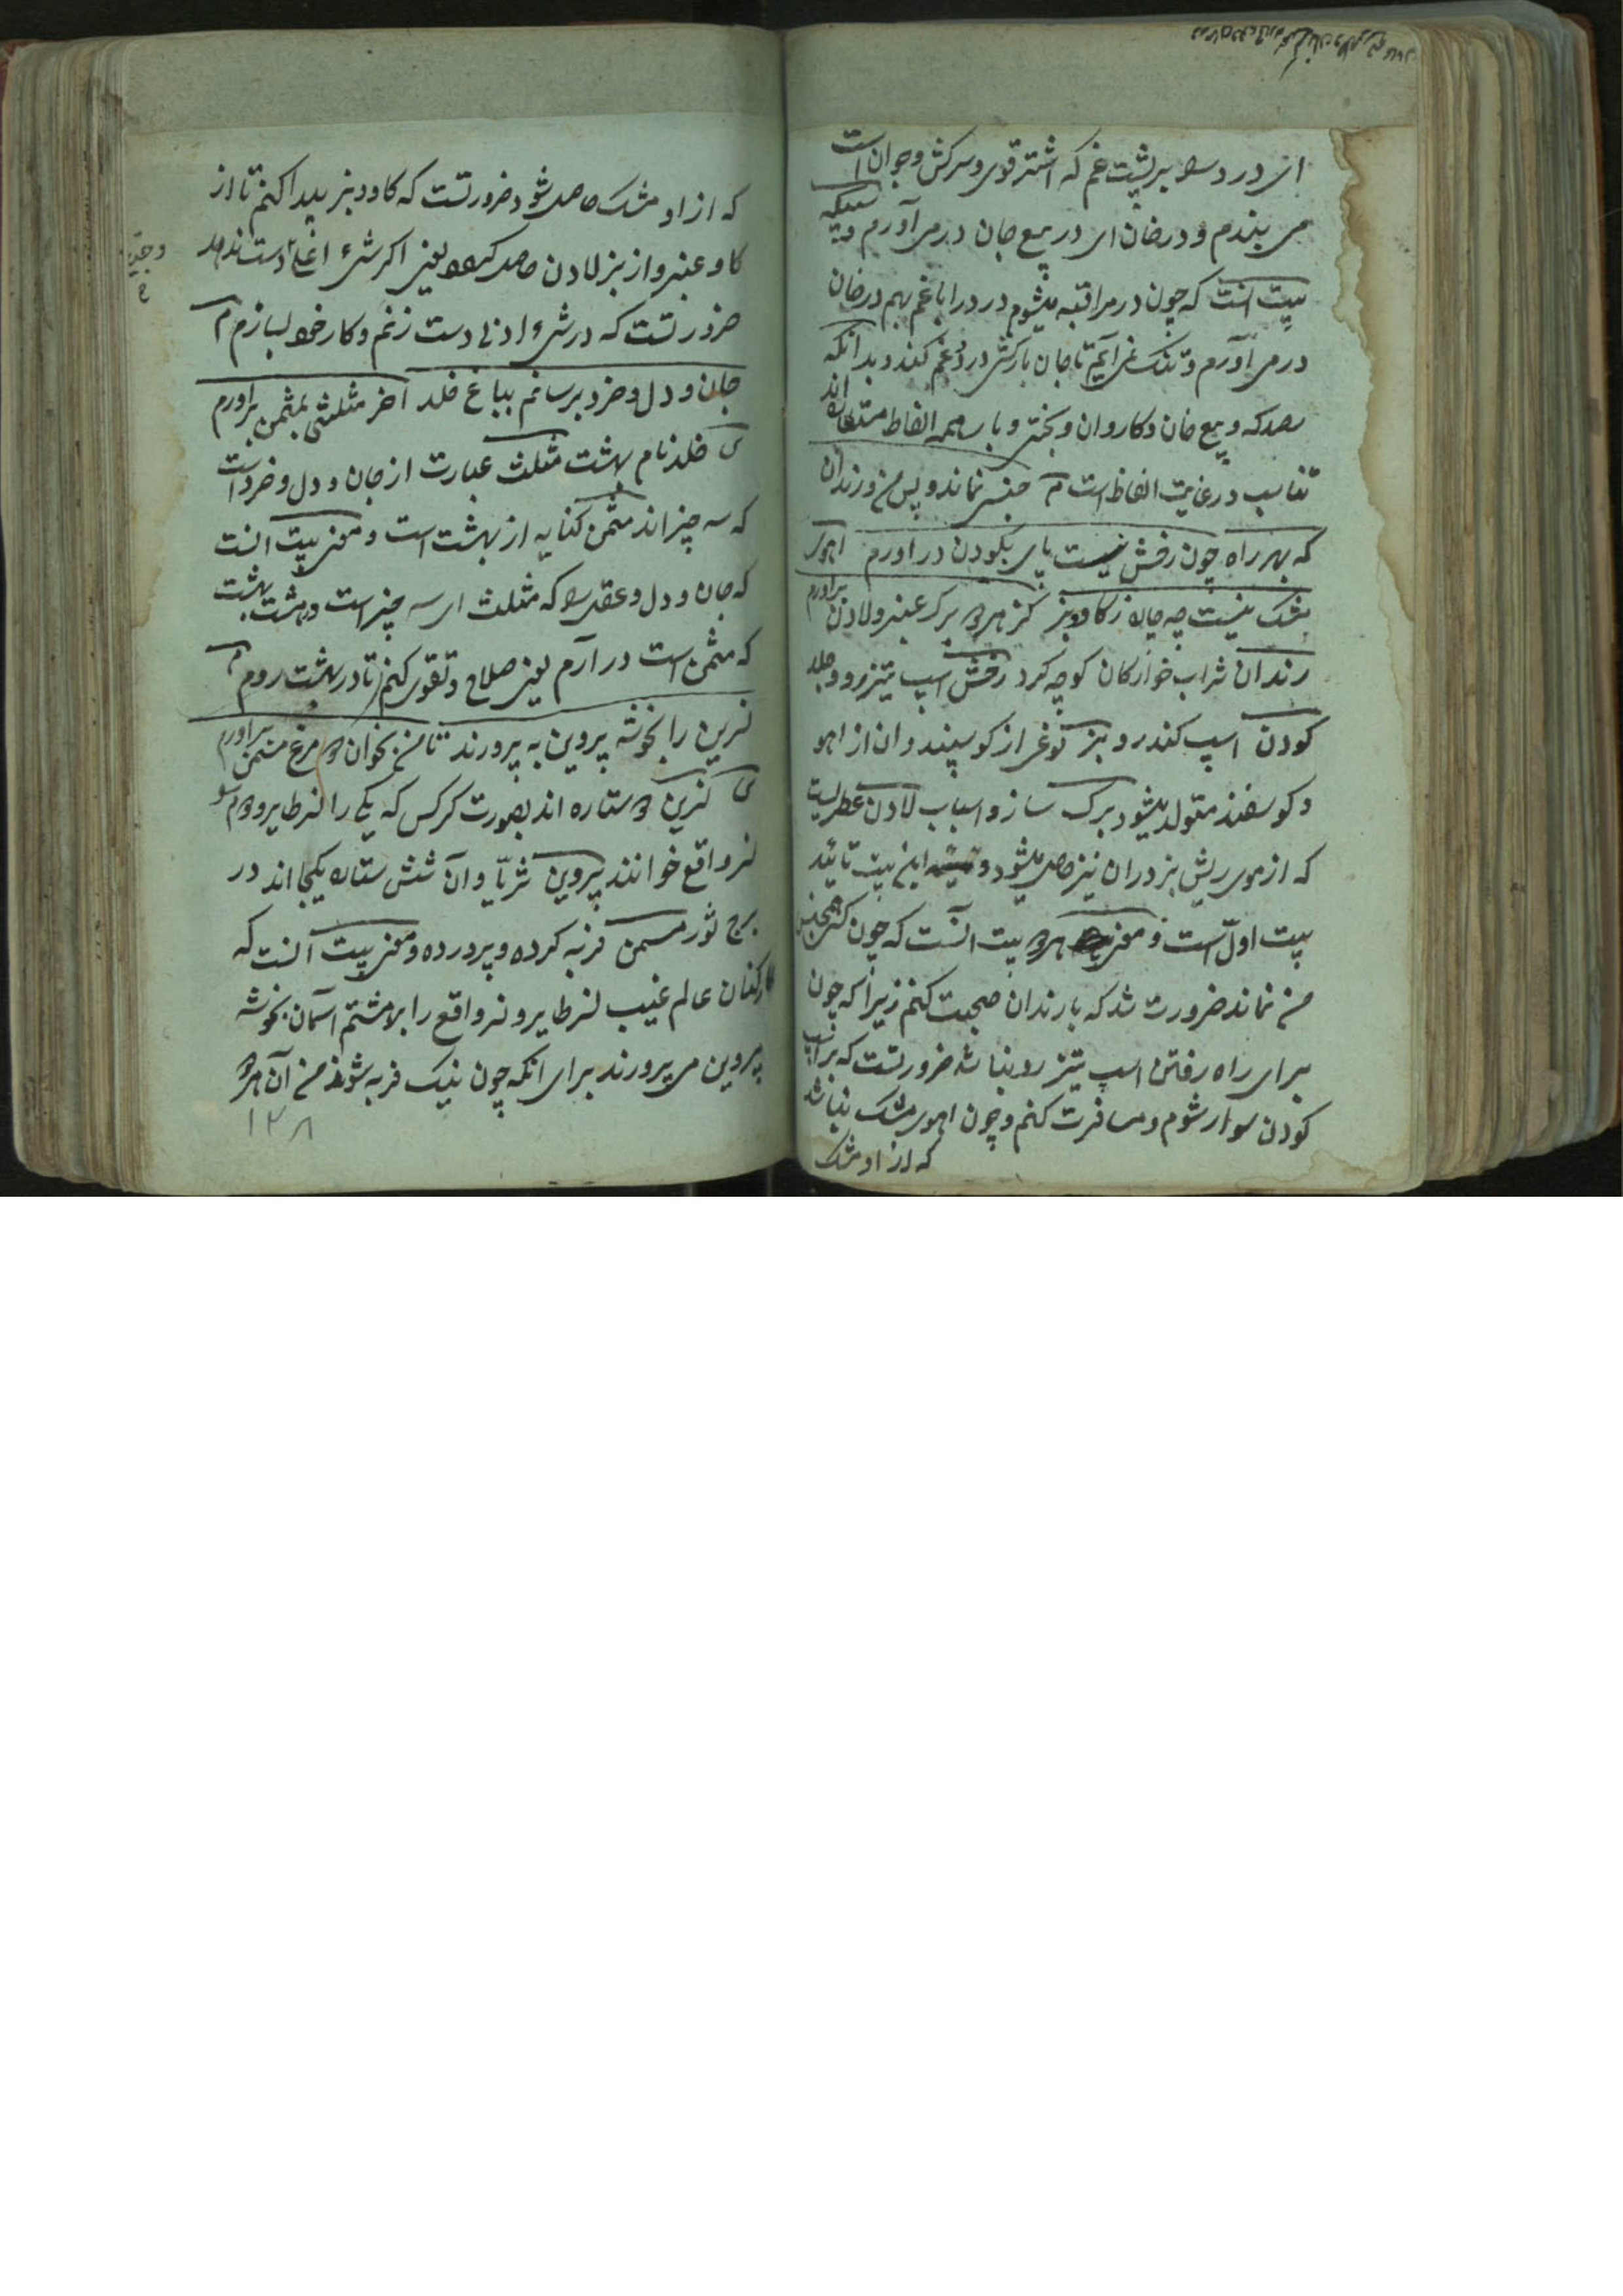 ای درد را بر پشت غم که اشتر قوی و سرکش و جوان است
می بندم و در خان ای در ربع جان در می آورم و
بیت انست که چون در مراقبه میشوم درد را با غم بهم در خان
در می آورم و تنگ نمی آیم تا جان بارکش درد و غم کند و بدانکه
که ربع خان و کاروان و بختی و بار همه الفاظ متعارف اند
تناسب در رعایت الفاظ است م جنسی نماند و پس من و رندان
که بهر راه چون رخش نیست پای بکودن در اورم اهوی
مشک نیست چه چاره ز کاو و بز کز هر دو برک عنبر و لادن براورم
رندان شراب خوارکان کوچه کرد رخش اسپ تیز رو و جلد
کودن اسپ کند رو بز نوعی از کوسپند و ان از اهو
و کوسفند متولد میشود برک ساز و اسباب لادن عطریست
که از موی ریش بز دران نیز حاصل میشود و این بیت تائید
بیت اول است و معنی هر دو بیت انست که چون کسی همجنس
من نماند ضرورت شد که با رندان صحبت کنم زیرا که چون
برای راه رفتن اسپ تیز رو نباشد ضرورتست که بر اسپ
کودن سوار شوم و مسافرت کنم و چون اهوی مشک نباشد
که از او مشک
که از او مشک حاصل شود ضرورتست که کاو و بز پیدا کنم تا از
کاو عنبر و از بز لادن حاصل کنم یعنی اکر شیء اعلی دست ندهد
ضرورتست که در شیء ادنی دست زنم و کار خود بسازم م
جان و دل و خرد برسانم بباغ خلد آخر مثلثی بمثمن براورم
ی خلد نام بهشت مثلث عبارت از جان و دل و خرد است
که سه چیز اند مثمن کنایه از بهشت است و معنی بیت انست
که جان و دل و عقل را که مثلث ای سه چیز است در هشت بهشت
که مثمن است در آرم یعنی صلاح و تقوی کنم تا در بهشت روم م
نسرین را بخوشه پروین به پرورند تا من بخوان دو مرغ مسمن براورم
ی نسرین دو ستاره اند بصورت کرکس که یکی را نسر طایر و دوم را
نسر واقع خوانند پروین ثریا و آن شش ستاره یکجا اند در
برج ثور مسمن فربه کرده و پرورده و معنی بیت آنست که
کارکنان عالم غیب نسر طایر و نسر واقع را بالا هشتم آسمان بخوشه
پروین می پرورند برای انکه چون نیک فربه شوند من آن هر دو
۱۳۸